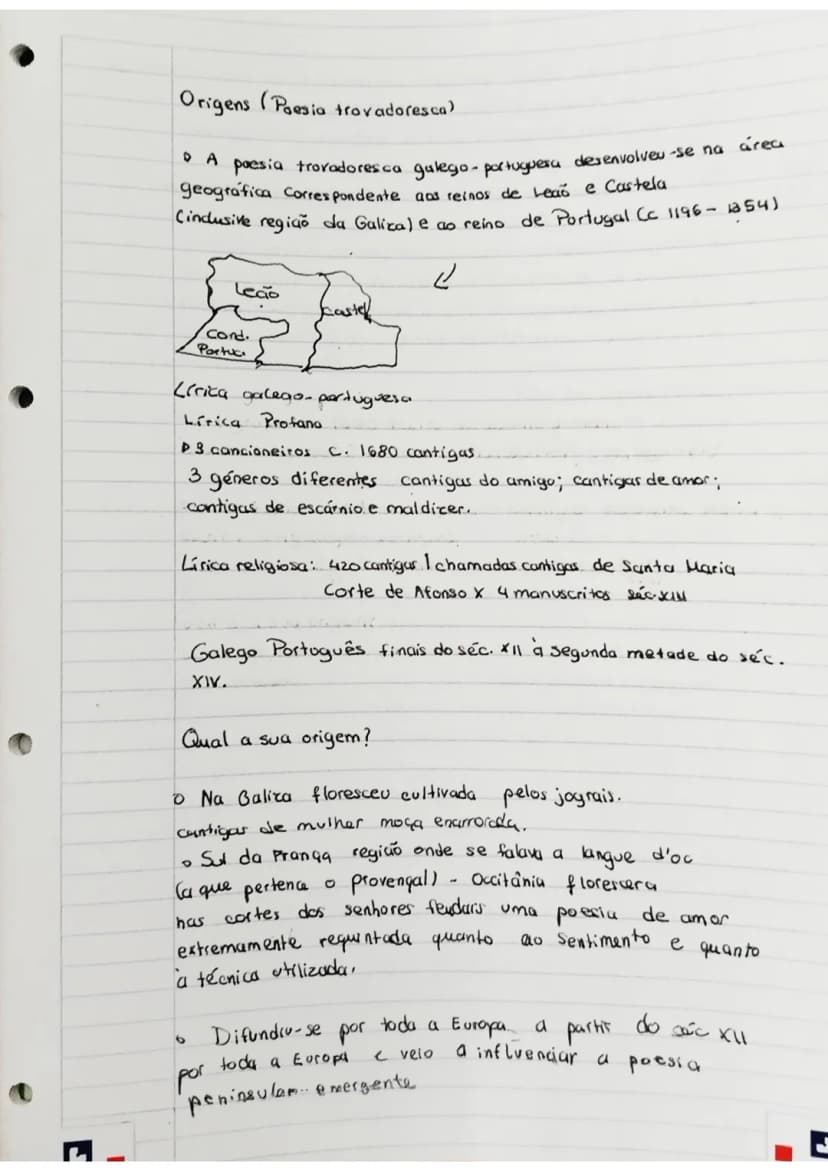 Origens (Poesia trovadoresca)
A poesia trovadoresca galego-portuguesa desenvolveu-se na área
geográfica correspondente aos reinos de Leão e Castela
(inclusive região da Galiza) e ao reino de Portugal (c 1196 - 1354)
Leão
Castel
Cond.
Portuc.
Lírica galego-portuguesa
Lírica Profana
3 cancioneiros c. 1680 cantigas
3 géneros diferentes cantigas do amigo; cantigas de amor;
cantigas de escárnio e maldizer.
Lírica religiosa: 420 cantigas | chamadas cantigas de Santa Maria
Corte de Afonso X 4 manuscritos séc. XIII
Galego Português finais do séc. XII à segunda metade do séc.
XIV.
Qual a sua origem?
Na Galiza floresceu cultivada pelos jograis.
cantigas de mulher moça enamorada.
Sul da França região onde se falava a langue d'oc
(a que pertence o provençal) - Occitânia florescera
nas cortes dos senhores feudais uma poesia de amor
extremamente requintada quanto ao sentimento e quanto
à técnica utilizada.
Difundiu-se por toda a Europa a partir do séc XII
por toda a Europa e veio a influenciar a poesia
peninsular emergente